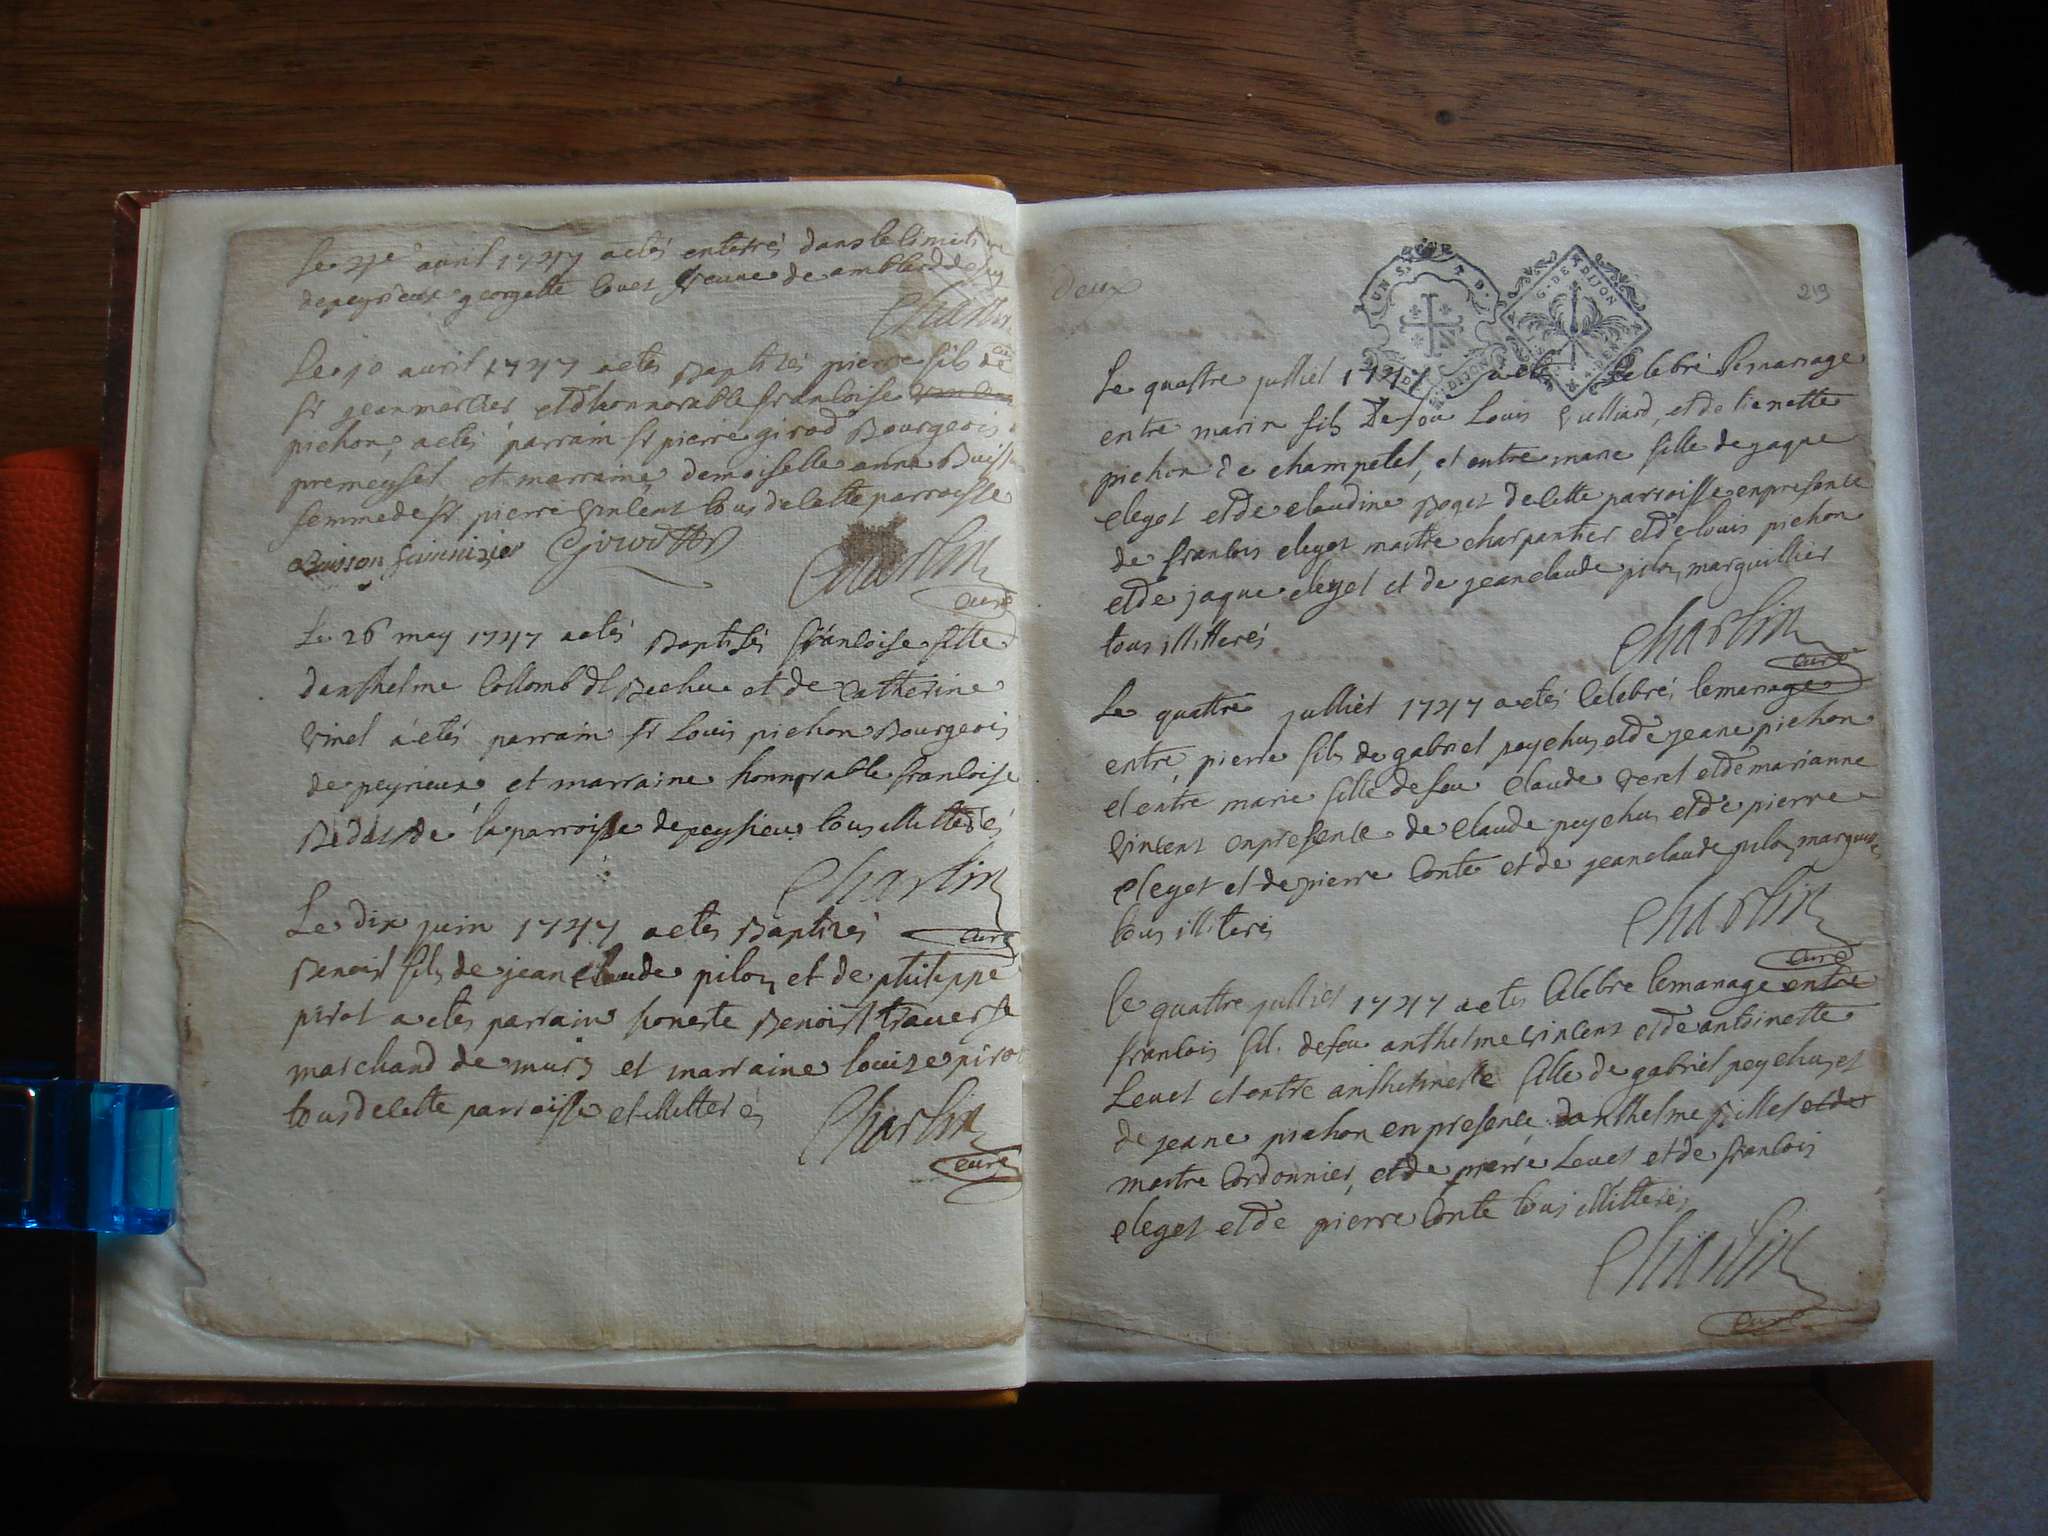 avril 1747 a etés enterrés dans le
de peyrieux georgette de
Chartin
Le 10 avril 1747 a etes Baptizés pierre fils de
sr jean mercier et dhonnorable francoise
pichon, a etés parrain sr pierre girod Bourgeois
premeysel et marraine demoiselle anne Buisson
femme de sr pierre vincent tous de cette parroisse
Buisson
Chartin
curé
Le 26 may 1747 a etés Baptisés francoise fille
danthelme Collomb et de Catherine
vinet a etés parrain sr Louis pichon Bourgeois
de peyrieux et marraine honnorable francoise
de la parroisse de peysieu tous illitterés
Chartin
curé
Le dix juin 1747 a etes Baptizés
Benoist fils de jean claude piloz et de philippe
pirot a etes parrain honeste Benoist traverse
marchand de murs et marraine louize pirot
tous de cette parroisse et illitterés
Chartin
curé
Deux
G · DE DIJON
219
Le quattre julliet 1747 a ete celebré le mariage
entre marin fils de feu Louis vulliard, et de tienette
pichon de champetel, et entre marie fille de jaque
cleget et de claudine Boget de cette parroisse en presence
de francois cleget maitre charpentier et de louis pichon
et de jaque cleget et de jean claude piloz marguillier
tous illitterés
Chartin
curé
Le quattre julliet 1747 a etés Celebrés le mariage
entre pierre fils de gabriel peychus et de jeane pichon
et entre marie fille de feu claude veret et de marianne
vincent en presence de claude peychus et de pierre
cleget et de pierre Conte et de jean claude piloz
tous illiterés
Chartin
curé
le quattre julliet 1747 a etes Celebre le mariage entre
francois fils de feu anthelme vincent et de antoinette
Levet et entre anthelmette fille de gabriel peychus et
de jeane pichon en presence danthelme billet et de
maitre Cordonnier, et de pierre Levet et de francois
cleget et de pierre Conte tous illitterés
Chartin
curé